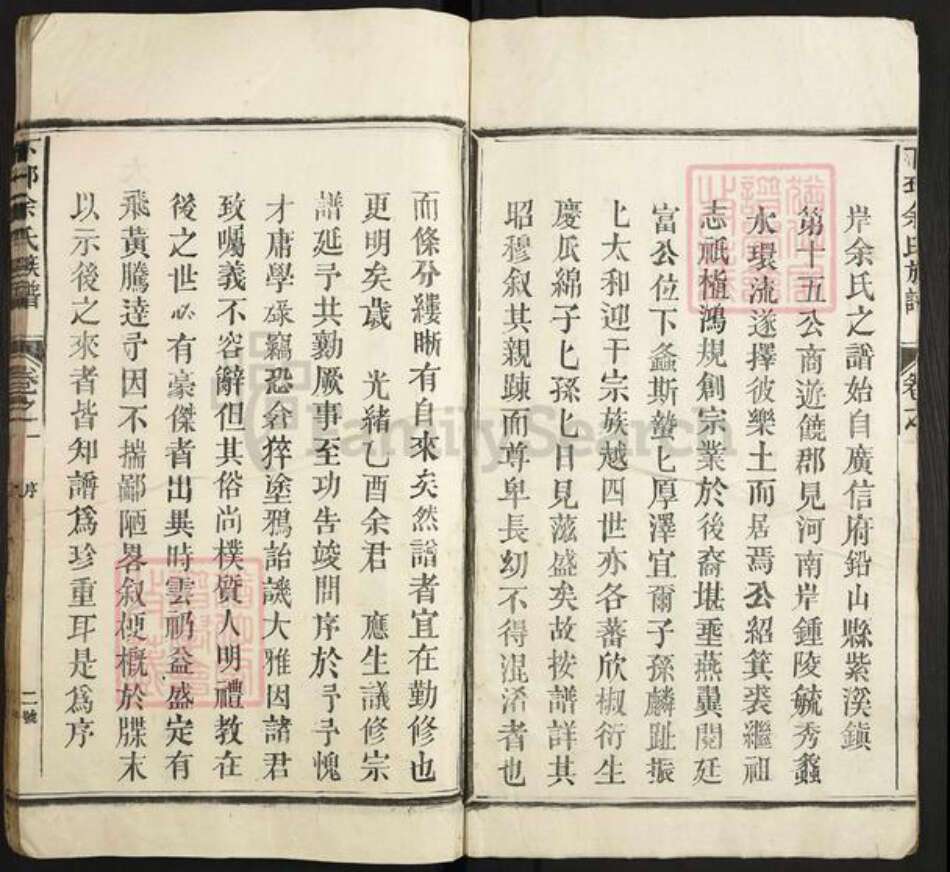 岸余氏之譜始自廣信府鉛山縣紫溪鎮
第十五公商遊饒郡見河南岸鍾陵毓秀蠡
水環流遂擇彼樂土而居焉公紹箕裘繼祖
志祇植鴻規創宗業於後裔堪垂燕翼閱廷
富公位下螽斯蟄匕厚澤宜爾子孫麟趾振
匕太和迎干宗族越四世亦各蕃欣椒衍生
慶瓜綿子匕孫匕目見茲盛矣故按譜詳其
昭穆叙其親踈而尊卑長幼不得混淆者也
而條分縷晰有自來矣然譜者宜在勤修也
更明矣歲 光緒乙酉余君 應生議修宗
譜延予共勷厥事至功告竣問序於予予愧
才庸學碌竊恐倉猝塗鴉詒譏大雅因諸君
致囑義不容辭但其俗尚樸質人明禮教在
後之世必有豪傑者出異時雲礽益盛定有
飛黃騰達予因不揣鄙陋畧叙梗概於牒末
以示後之來者皆知譜爲珍重耳是爲序
下邳余氏族譜
卷之一
序
二號
FamilySearch